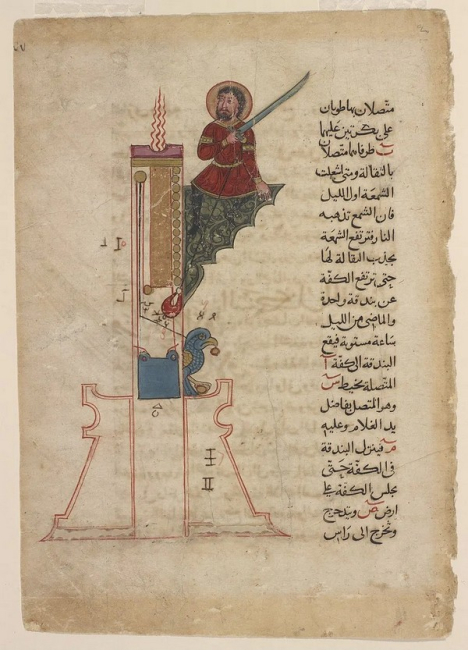 متصلان بها
على بكرتين عليهما
ب طرفاهما متصلان
بالثقالة ومتى اشعلت
الشمعة اول الليل
فان الشمع تذهبه
النار فترتفع الشمعة
بجذب الثقالة لها
حتى ترتفع الكفة
عن بندقة واحدة
والماضى من الليل
ساعة مستوية فيقع
البندقة الى الكفة
المتصلة بخيط س
وهو المتصل بفاضل
يد الغلام وعليه
فينزل البندقة
فى الكفة حتى
يجلس الكفة على
ارض ص ويتدحرج
وتخرج الى راس